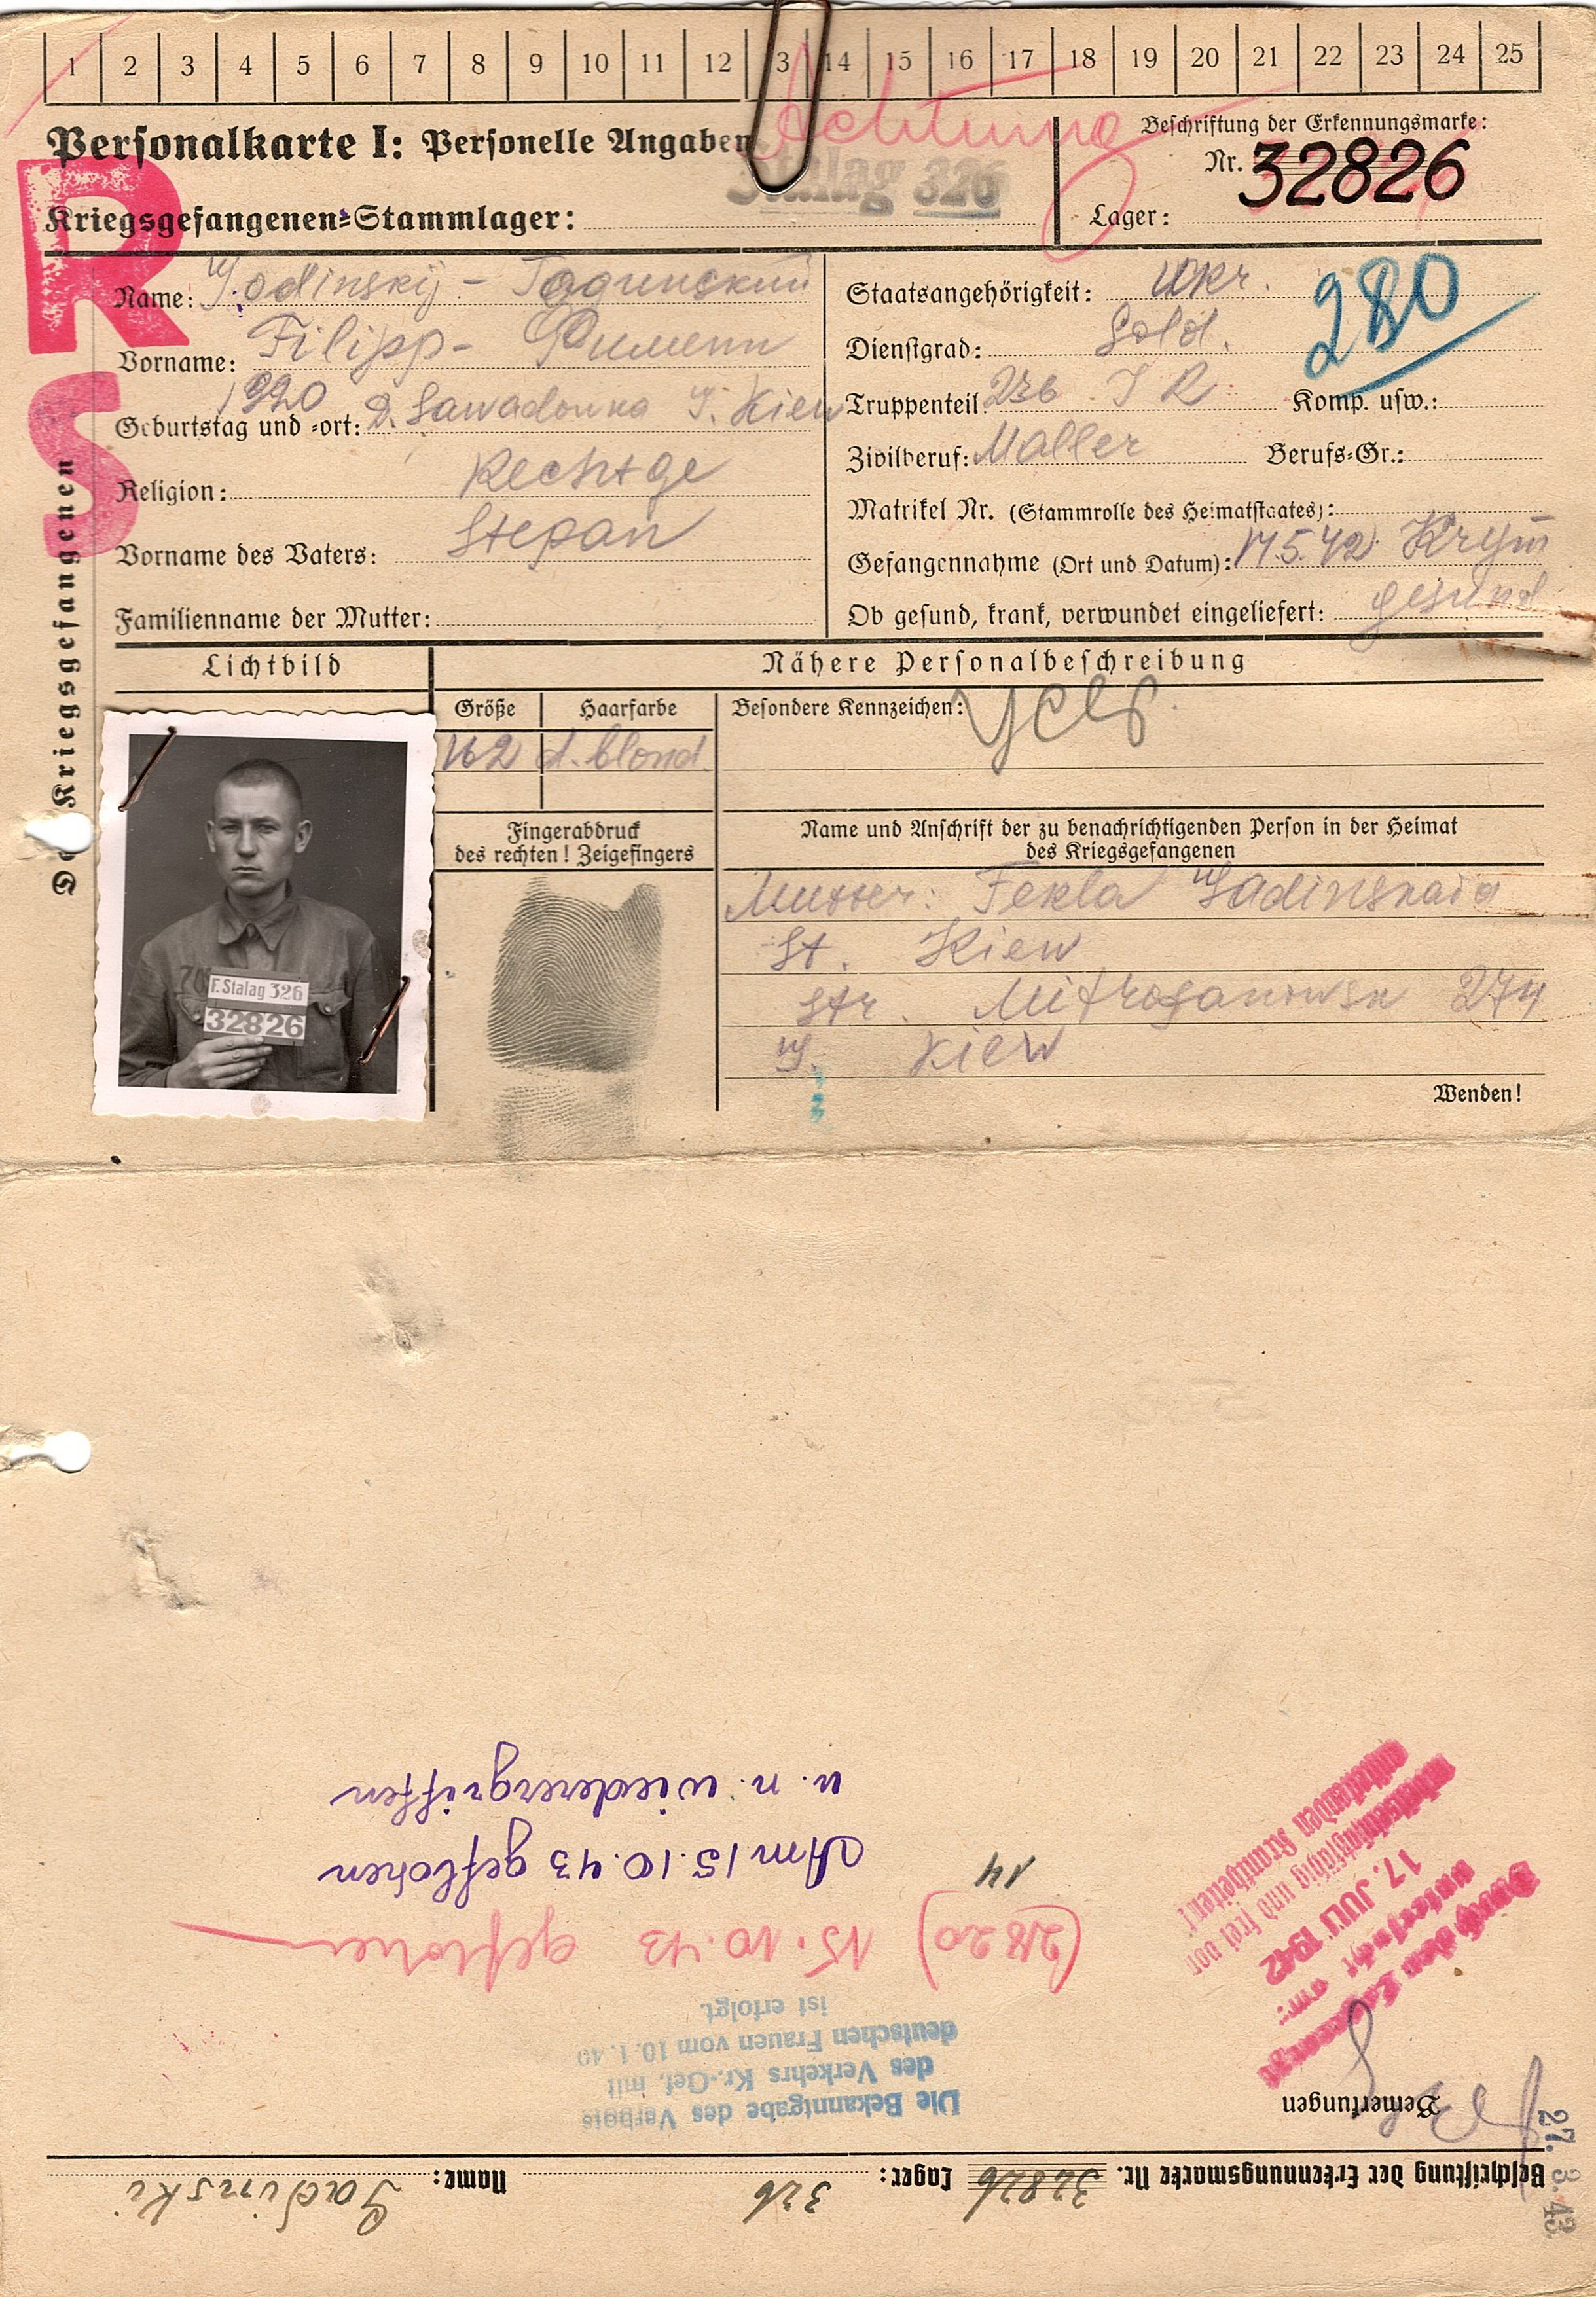 1 2 3 4 5 6 7 8 9 10 11 12 13 14 15 16 17 18 19 20 21 22 23 24 25
Achtung
Personalkarte I: Personelle Angaben
Stalag 326
Kriegsgefangenen-Stammlager:
Beschriftung der Erkennungsmarke:
Nr. 32826
Lager:
R
S
Des Kriegsgefangenen
Name:
Vorname: Filipp - Филипп
Geburtstag und -ort: 1920 Kiew
Religion:
Vorname des Vaters: Stepan
Familienname der Mutter:
Staatsangehörigkeit: Ukr.
280
Dienstgrad: Sold.
Truppenteil: 236 I R Komp. usw.:
Zivilberuf: Maller Berufs-Gr.:
Matrikel Nr. (Stammrolle des Heimatstaates):
Gefangennahme (Ort und Datum): 17.5.42 Krym
Ob gesund, krank, verwundet eingeliefert: gesund
Lichtbild
Nähere Personalbeschreibung
Größe Haarfarbe Besondere Kennzeichen:
162 d. blond.
F. Stalag 326
32826
Fingerabdruck
des rechten! Zeigefingers
Name und Anschrift der zu benachrichtigenden Person in der Heimat
des Kriegsgefangenen
Mutter: Fekla
St. Kiew
Str. 274
Kiew
Wenden!
Beschriftung der Erkennungsmarke Nr. 32826 Lager: 326 Name: Gadinski
27. 3. 43.
Bemerkungen
Die Bekanntgabe des Verbots
des Verkehrs Kr.-Gef. mit
deutschen Frauen vom 10.1.40
ist erfolgt.
Durch den Lagerarzt
untersucht am:
17. JULI 1942
arbeitseinsatzfähig und frei von
ansteckenden Krankheiten!
(2820) 15.10.43 geflohen
14
Am 15.10.43 geflohen
u. n. wiederergriffen